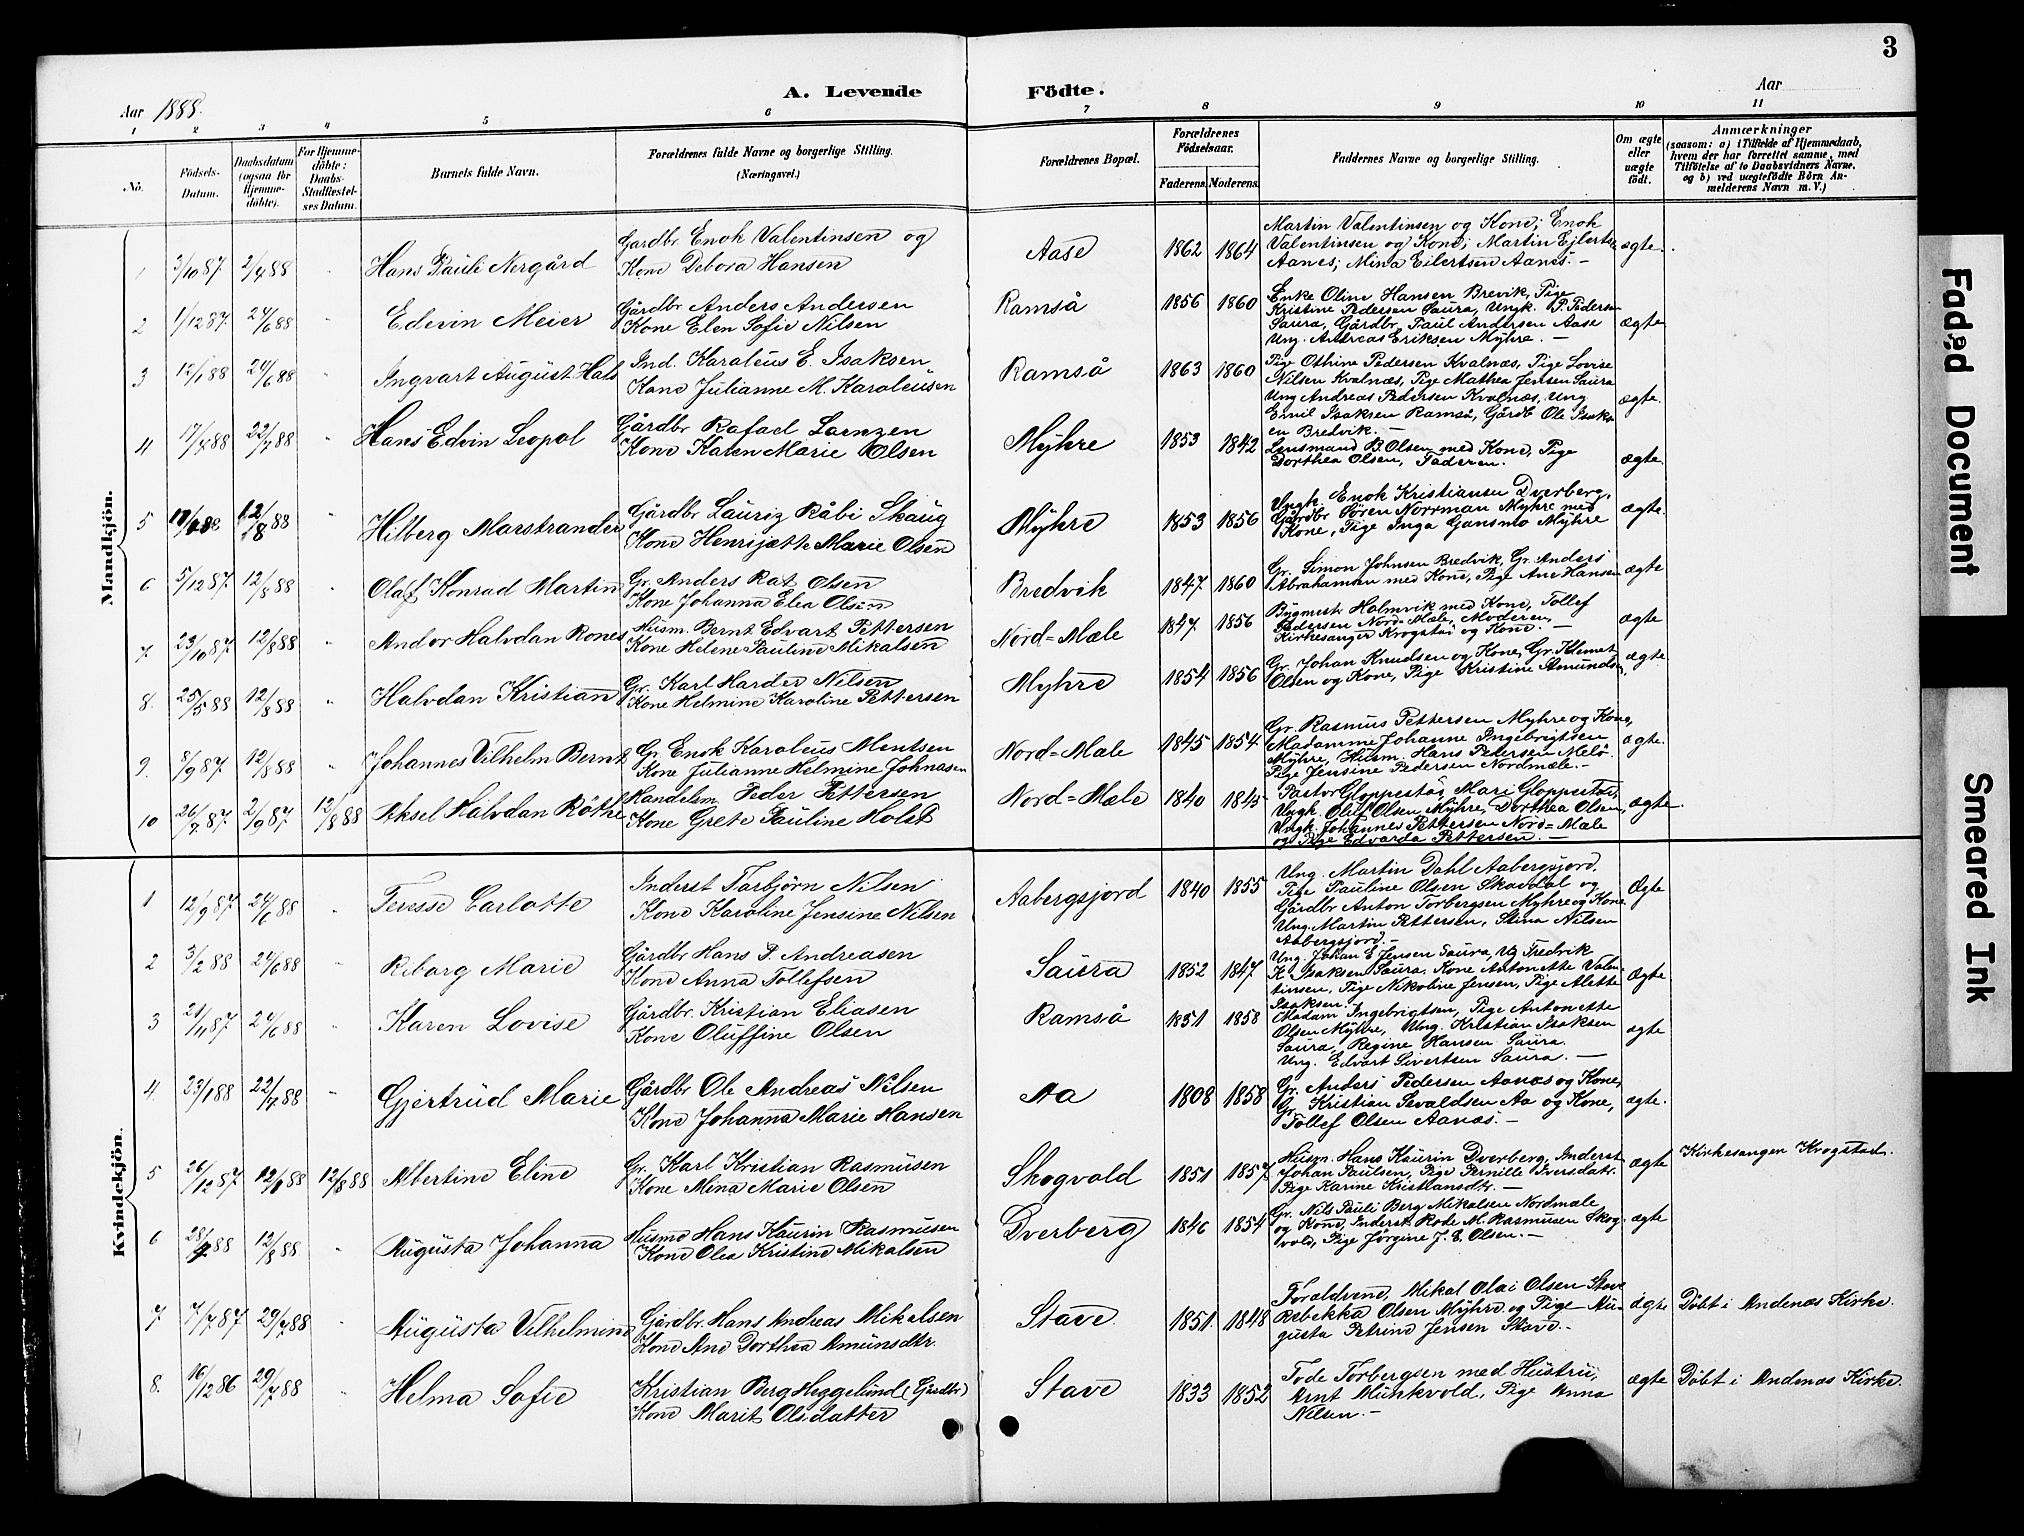 3
Aar 1888.
A. Levende Födte.
Aar
1 2 3 4 5 6 7 8 9 10 11
No.
Födsels-
Datum.
Daabsdatum
(ogsaa for
Hjemme-
döbte).
For Hjemme-
döbte:
Daabs-
Stadfæstel-
ses Datum.
Barnets fulde Navn.
Forældrenes fulde Navne og borgerlige Stilling.
(Næringsvei.)
Forældrenes Bopæl.
Forældrenes
Födselsaar.
Faderens. Moderens.
Faddernes Navne og borgerlige Stilling.
Om ægte
eller
uægte
født.
Anmærkninger
(saasom: a) i Tilfælde af Hjemmedaab,
hvem der har forrettet samme, med
Tilføielse af to Daabsvidners Navne,
og b) ved uægtefödte Börn An-
melderens Navn m. V.)
Mandkjön.
1 3/10 87. 2/4 88 " Hans Pauli Nergård
Gardbr Enok Valentinsen og
Kone Debora Hansen
Aase 1862 1864
Martin Valentinsen og Kone; Enok
Valentinsen og Kone; Martin Ejlerts
Aanes; Mina Eilertsen Aanes.-
ægte.
2 1/12 87. 24/6 88 " Edevin Meier
Gårdbr Anders Andersen
Kone Elen Sofie Nilsen
Ramså 1856 1860
Enke Oline Hansen Brevik, Pige
Kristine Pedersen Saura, Ungk. P. Pedersen
Saura, Gårdbr. Paul Andersen Aase
Ung. Andreas Eriksen Myhre. -
ægte
3 12/1 88 24/6 88 " Ingvart August Hals
Ind. Karoleus E. Isaksen
Kone Julianne M. Karoleusen
Ramså 1863 1860
Pige Othine Pedersen Kvalnæs, Pige Lovise
Nilsen Kvalnæs, Pige Mathea Jensen Saura
Ung Andreas Pedersen Kvalnæs, Ung
Emil Isaksen Ramså, Gårdb. Ole Isaks
en Bredvik. -
ægte.
4 17/4 88 22/7 88 " Hans Edvin Leopol
Gårdbr Rafael Larnzen
Kone Karen Marie Olsen
Myhre 1853 1842
Lensmand B. Olsen med Kone, Pige
Dorthea Olsen, Faderen.
ægte.
5 12/8 88 " Hilberg Marstrander
Gårdbr Lauriz Råbi Skaug
Kone Henrijætte Marie Olsen
Myhre 1853 1856
Ungk. Enok Kristiansen Dverberg,
Gårdbr Sören Norrman Myhre med
Kone, Pige Inga Gansmo Myhre
ægte
6 5/12 87. 12/8 88 " Olaf Konrad Martin
Gr. Anders Rat Olsen
Kone Johanna Elea Olsen
Bredvik 1847. 1860
Gr. Simon Johnsen Bredvik, Gr. Anders
Abrahamsen med Kone, Pige Ane Hansen
ægte
7. 23/10 87 12/8 88 Andor Halvdan Rones
Husm. Bernt Edvart Pettersen
Kone Helene Pauline Mikalsen
Nord=Mæle 1847. 1856
Bygmestr Halmvik med Kone, Tollef
Pedersen Nord=Mæle, Moderen,
Kirkesanger Krogstad og Kone. -
ægte
8. 25/5 88 12/8 88 " Halvdan Kristian
Gr. Karl Harder Nilsen
Kone Helmine Karoline Pettersen
Myhre 1854 1856
Gr. Johan Knudsen og Kone, Gr. Klemet
Olsen og Kone, Pige Kristine Amunds
ægte
9. 8/9 87 12/8 88 " Johannes Vilhelm Bernt
Gr. Enok Karoleus Mentsen
Kone Julianne Helmine Johnasen
Nord=Mæle 1845 1854
Gr. Rasmus Pettersen Myhre og Kone,
Madamme Johanne Ingebrigtsen
Myhre, Husm. Hans Petersen Melö.
Pige Jensine Pedersen Nordmæle. -
ægte.
10 26/7 87. 2/9 87. 12/8 88 Aksel Halvdan Röthe
Handelsm Peder Pettersen
Kone Grete Pauline Holst
Nord=Mæle 1840 1845
Pastor Gloppestad, Mari Gloppestad,
Ungk. Oluf Olsen Myhre, Dorthea Olsen,
Ungk. Johannes Pettersen Nord=Mæle
og Pige Edvarda Pettersen. -
ægte.
Kvindekjön.
1 12/9 87. 24/6 88 " Teresse Carlotte
Inderst Torbjörn Nilsen
Kone Karoline Jensine Nilsen
Aabergsjord 1840 1855
Ung. Martin Dahl Aabergsjord,
Pige Pauline Olsen Skavdal og
Gårdbr Anton Torbergsen Myhre og Kone
Ung. Martin Pettersen, Stina Nilsen
Aabergsjord. -
Ægte
2 3/2 88 24/6 88 " Reborg Marie
Gårdbr Hans P. Andreasen
Kone Anna Tollefsen
Saura 1852 1847
Ung. Johan E Jensen Saura, Ug Fredrik
K. Isaksen Saura, Kone Antonette Valen
tinsen, Pige Nikoline Jensen, Pige Alette
Isaksen.
Ægte
3 21/11 87 24/6 88 " Karen Lovise
Gårdbr. Kristian Eliasen
Kone Oluffine Olsen
Ramså 1851 1858
Madam Ingebrigtsen, Pige Antonette
Olsen Myhre, Ung. Kristian Isaksen
Saura, Regine Hansen Saura.
Ung. Edvart Sivertsen Saura. -
ægte
4. 23/1 88 22/7 88 " Gjertrud Marie
Gårdbr Ole Andreas Nilsen
Kone Johanna Marie Hansen
Aa 1808 1858
Gr. Anders Pedersen Aanæs og Kone,
Gr. Kristian Sevaldsen Aa og Kone,
Tollef Olsen Aanæs. -
ægte.
5 26/12 87 12/8 88 12/8 88 Albertine Eline
Gr. Karl Kristian Rasmusen
Kone Mina Marie Olsen
Skogvold 1851 1857
Husm. Hans Kaurin Dverberg, Inderst
Johan Paulsen, Pige Pernille Iversdatr.
Pige Karine Kristiansdtr. -
ægte
Kirkesangen Krogstad.
6 12/8 88 " Augusta Johanna
Husmd Hans Kaurin Rasmusen
Kone Olea Kristine Mikalsen
Dverberg 1846 1854
Gr. Nils Pauli Berg Mikalsen Nordmæle
og Kone, Inderst Rode M. Rasmusen Skog
vold, Pige Jörgine J. E. Olsen. -
ægte
7 7/7 87 29/7 88 " Augusta Vilhelmine
Gårdbr. Hans Andreas Mikalsen
Kone Ane Dorthea Amunsdtr.
Stave 1851. 1848
Forældrene, Mikal Olai Olsen Stave
Rebekka Olsen Myhre og Pige Au-
gusta Petrine Jensen Stave. -
ægte
Döbt i Andenæs Kirke.
8. 16/12 86 29/7 88 " Helma Sofie
Kristian Berg Heggelund (Grdbr)
Kone Marit Olsdatter
Stave 1833 1852
Tode Torbergsen med Hustru,
Arnt Munkvold, Pige Anna
Nilsen. -
ægte
Döbt i Andenæs Kirke.
Faded Document
Smeared Ink